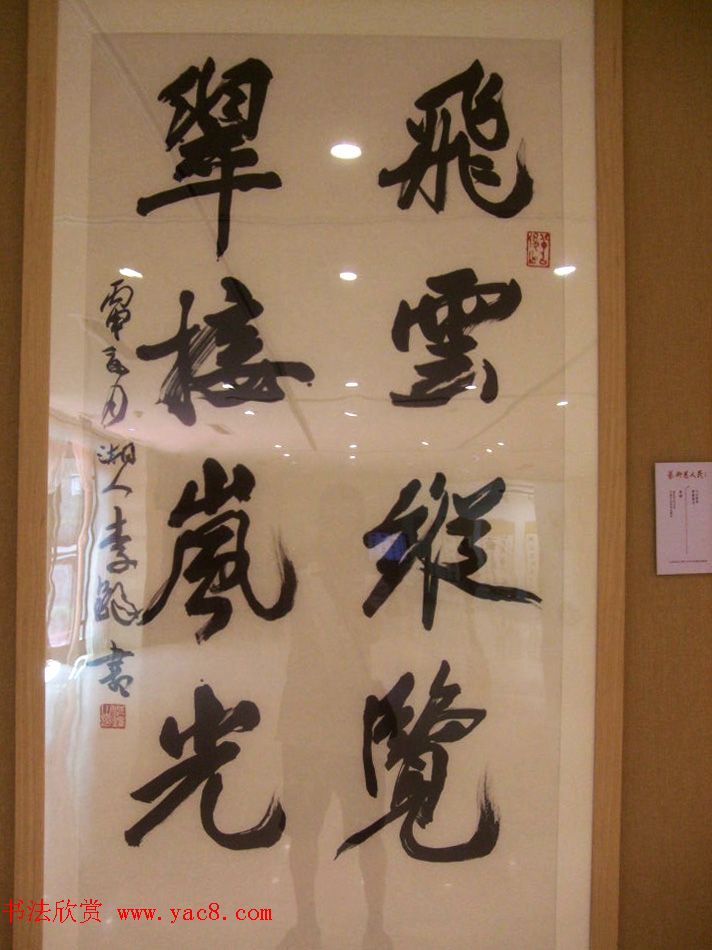 飛雲縱覽
翠接嵐光
丙申五月湘人李鐸書
书法欣赏 www.yac8.com